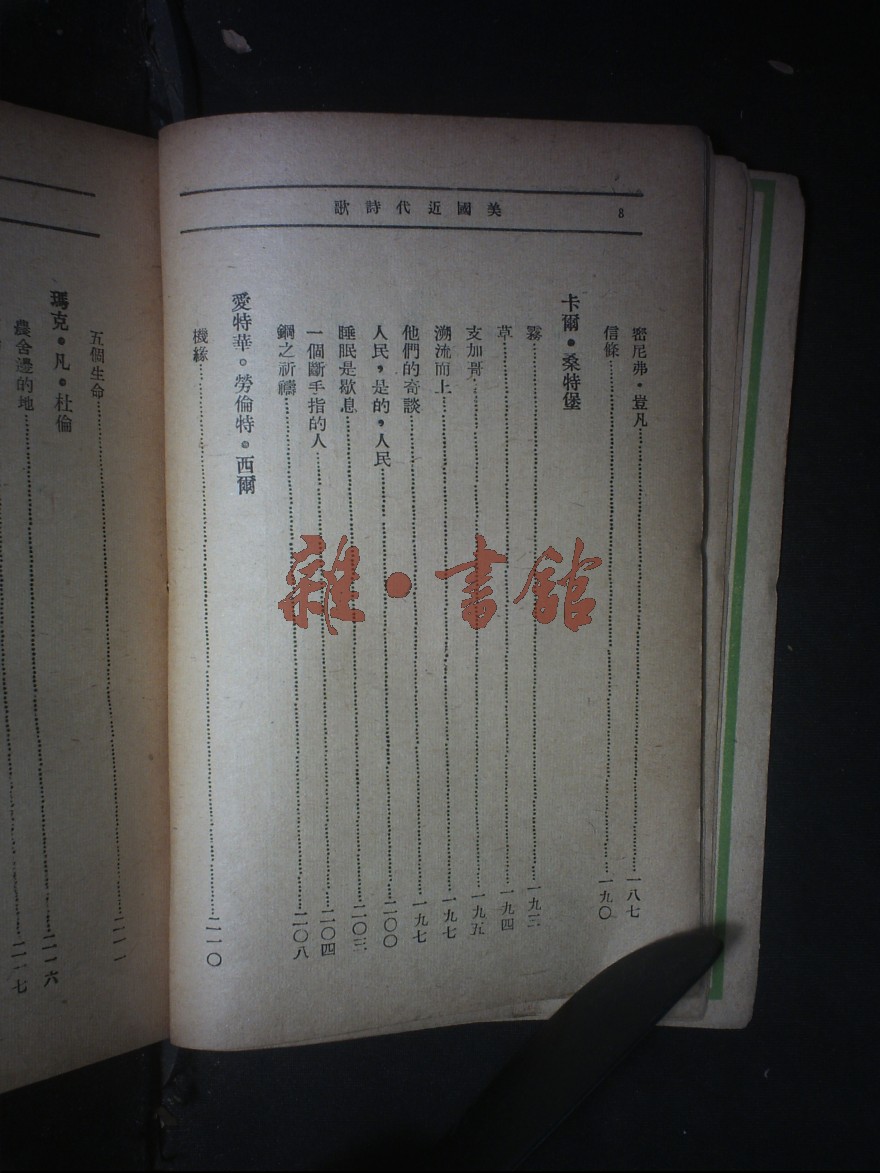 美國近代詩歌 8
密尼弗·豈凡……一八七
信條……一九〇
卡爾·桑特堡
霧……一九三
草……一九四
支加哥……一九五
溯流而上……一九七
他們的奇談……一九七
人民，是的，人民……二〇〇
睡眠是歇息……二〇三
一個斷手指的人……二〇四
鋼之祈禱……二〇八
愛特華·勞倫特·西爾
機緣……二一〇
五個生命……二一一
瑪克·凡·杜倫
農舍邊的地……二一六
二一七
雜·書館